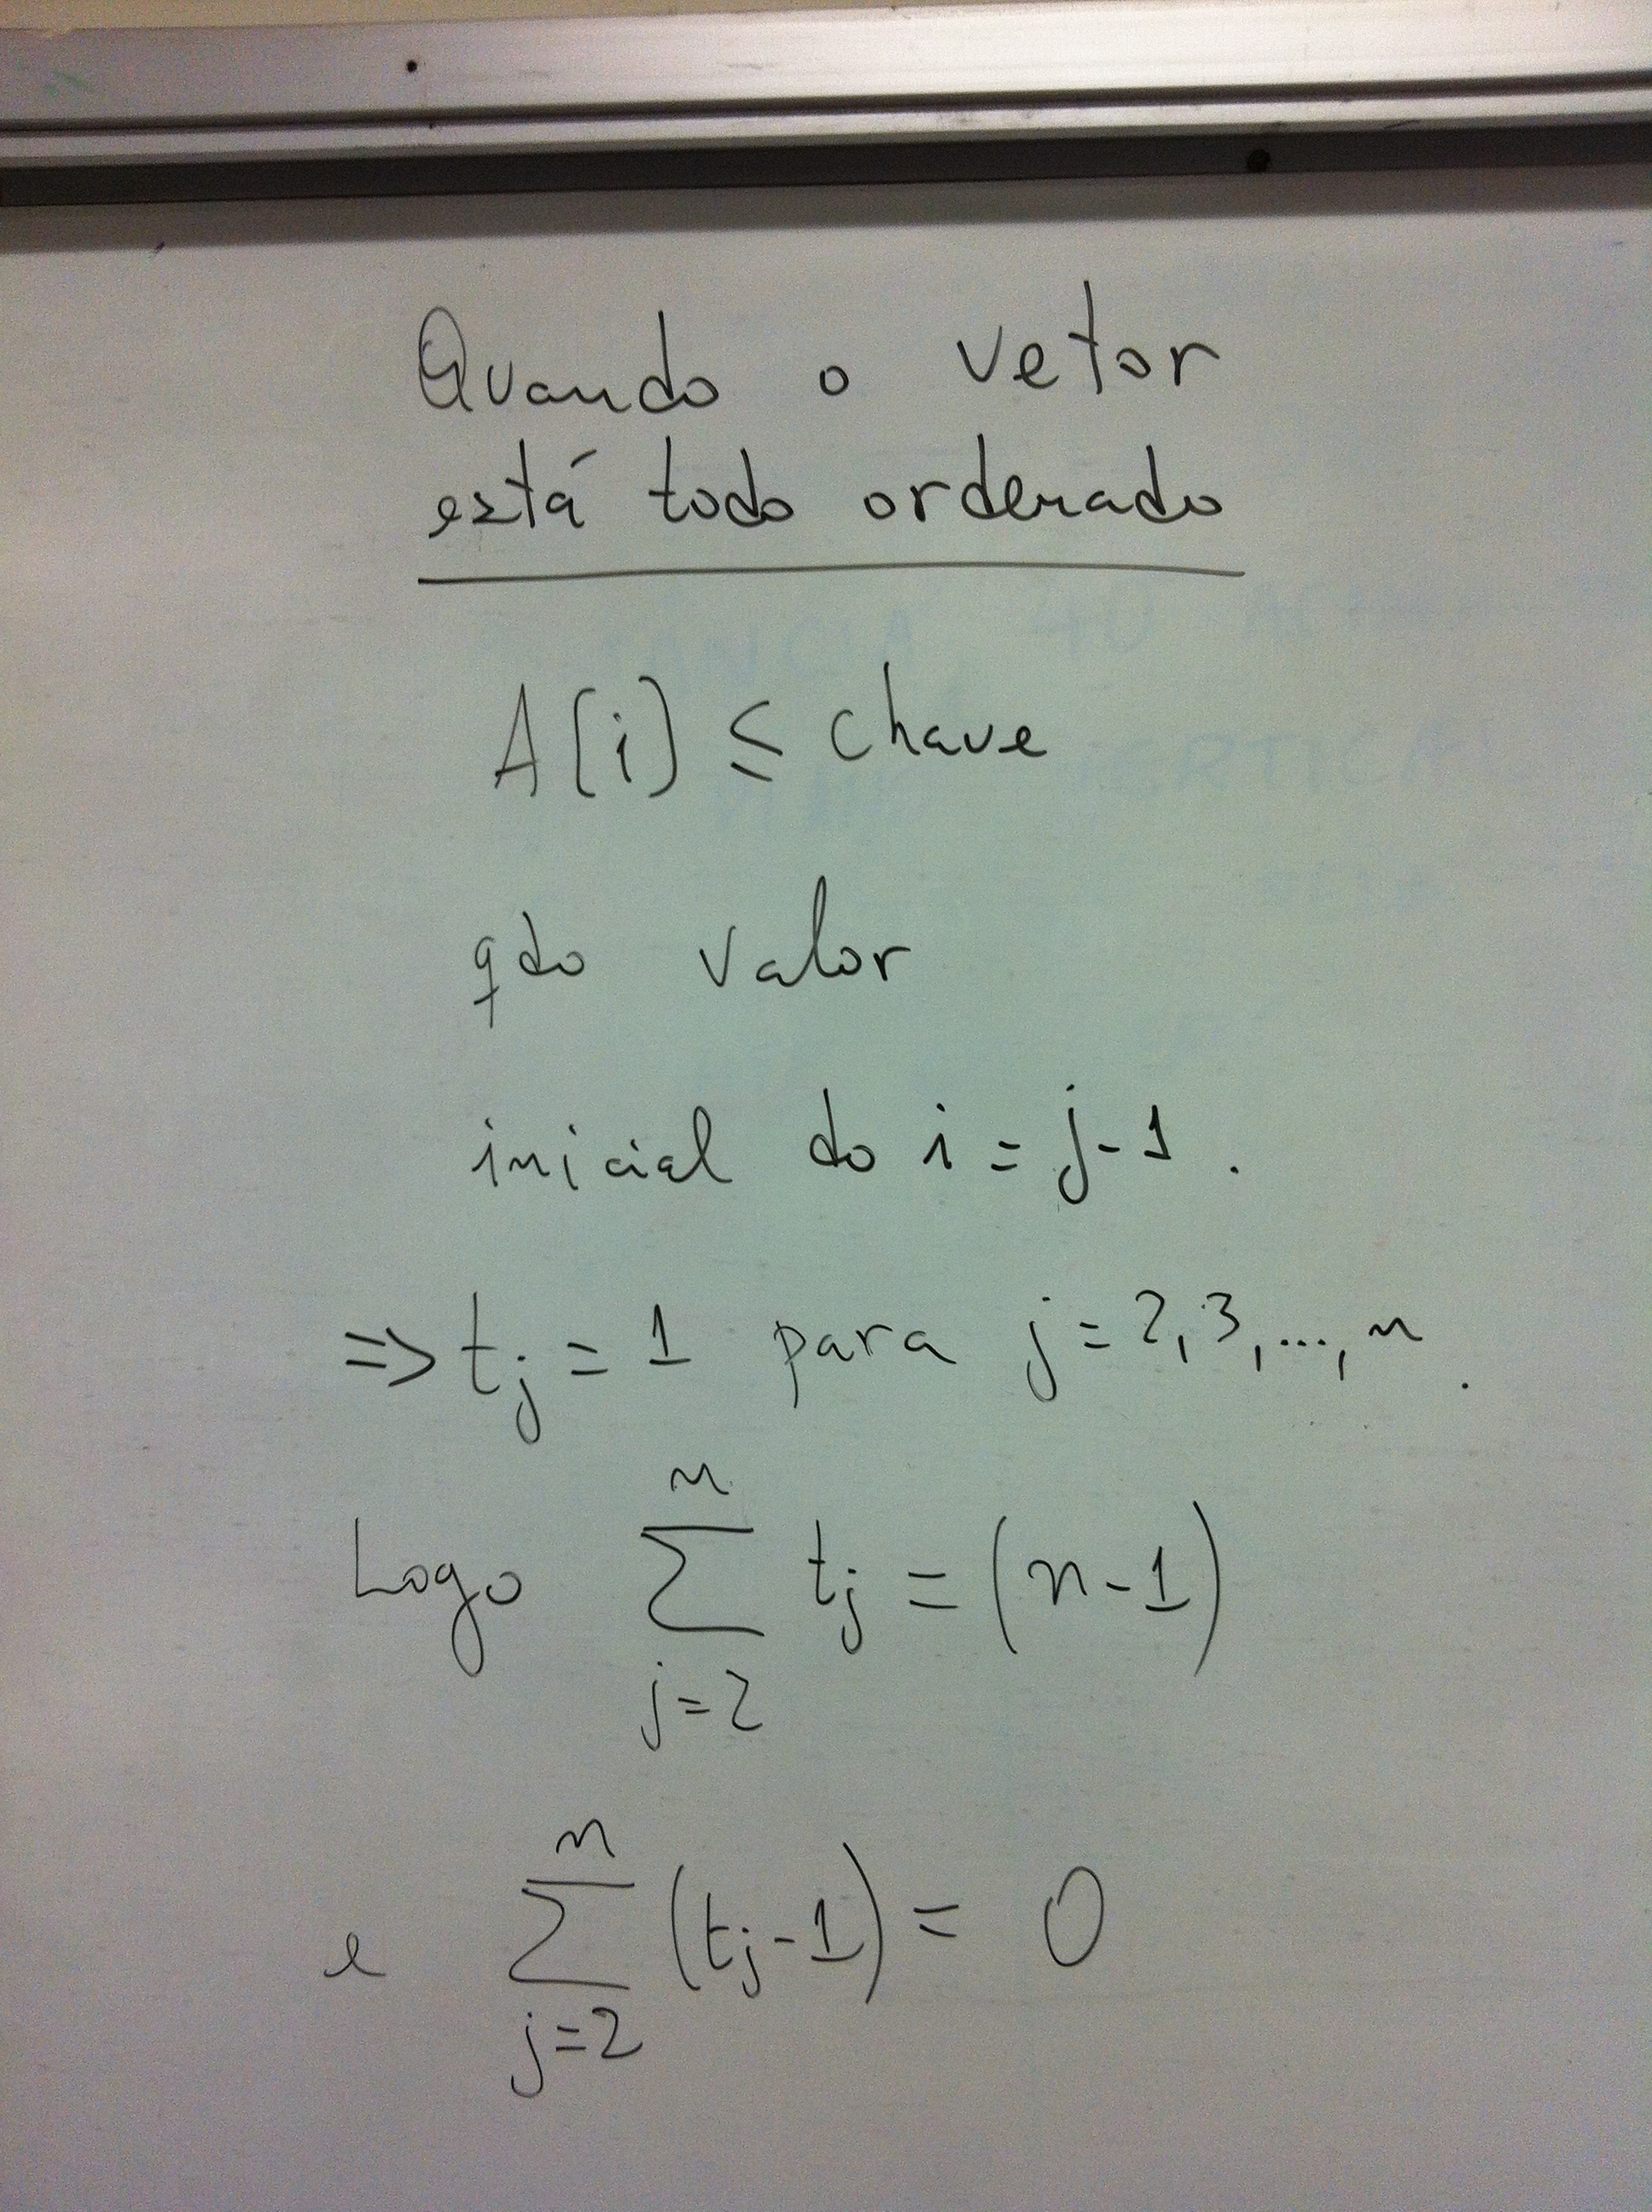 Quando o vetor
está todo ordenado
A[i] ≤ chave
qdo valor
inicial do i = j-1.
=> tj = 1 para j = 2, 3, ..., n.
Logo n∑j=2 tj = (n-1)
e n∑j=2 (tj-1) = 0